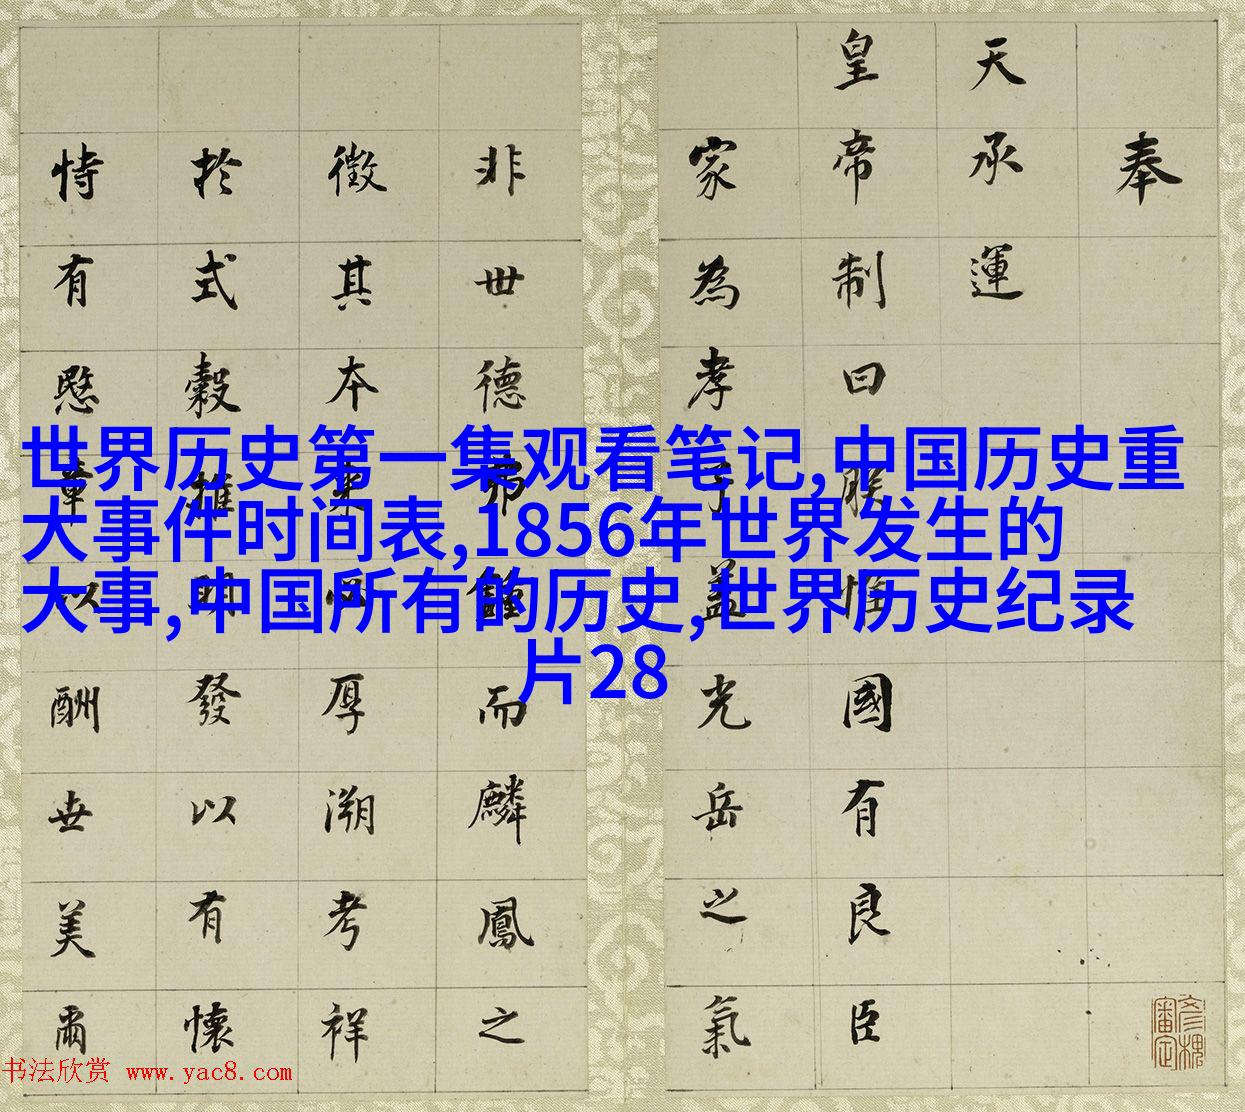 奉
天承運
皇帝制曰朕惟國有良臣
家為孝子蓋光岳之氣
非世德弗鍾而麟鳳之
徵其本來必厚溯考祥
於式穀推明發以有懷
恃有慇章以酬世美爾
世界历史第一集观看笔记,中国历史重
大事件时间表,1856年世界发生的
大事,中国所有的历史,世界历史纪录
片28
书法欣赏 www.yac8.com